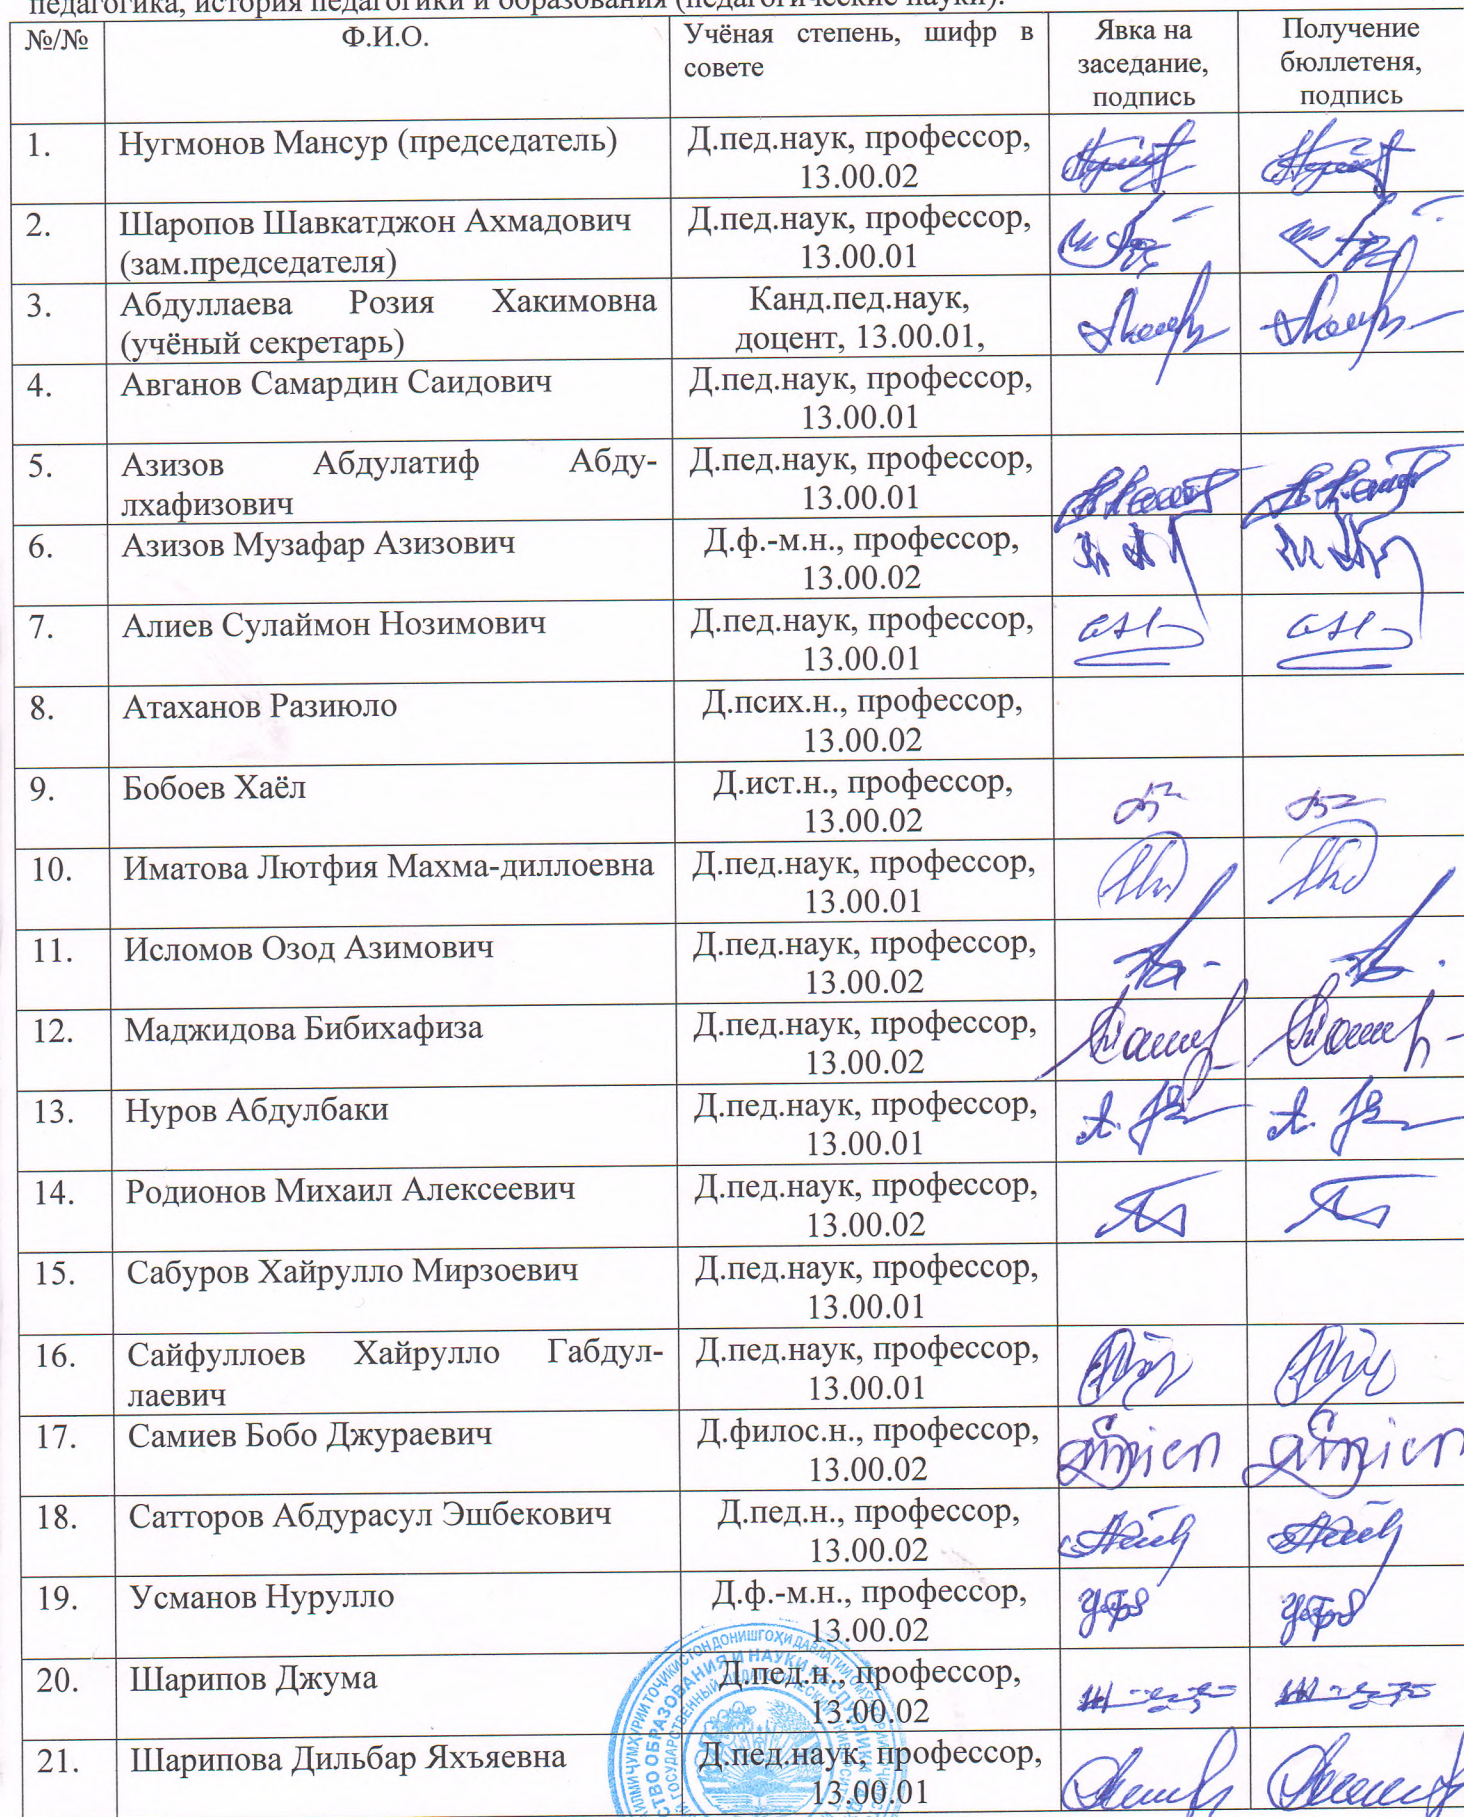 педагогика, история педагогики и образования (педагогические науки).
№/№ Ф.И.О. Учёная степень, шифр в совете Явка на заседание, подпись Получение бюллетеня, подпись
1. Нугмонов Мансур (председатель) Д.пед.наук, профессор,
13.00.02
2. Шаропов Шавкатджон Ахмадович Д.пед.наук, профессор,
(зам.председателя) 13.00.01
3. Абдуллаева Розия Хакимовна Канд.пед.наук,
(учёный секретарь) доцент, 13.00.01,
4. Авганов Самардин Саидович Д.пед.наук, профессор,
13.00.01
5. Азизов Абдулатиф Абду- Д.пед.наук, профессор,
лхафизович 13.00.01
6. Азизов Музафар Азизович Д.ф.-м.н., профессор,
13.00.02
7. Алиев Сулаймон Нозимович Д.пед.наук, профессор,
13.00.01
8. Атаханов Разиюло Д.псих.н., профессор,
13.00.02
9. Бобоев Хаёл Д.ист.н., профессор,
13.00.02
10. Иматова Лютфия Махма-диллоевна Д.пед.наук, профессор,
13.00.01
11. Исломов Озод Азимович Д.пед.наук, профессор,
13.00.02
12. Маджидова Бибихафиза Д.пед.наук, профессор,
13.00.02
13. Нуров Абдулбаки Д.пед.наук, профессор,
13.00.01
14. Родионов Михаил Алексеевич Д.пед.наук, профессор,
13.00.02
15. Сабуров Хайрулло Мирзоевич Д.пед.наук, профессор,
13.00.01
16. Сайфуллоев Хайрулло Габдул- Д.пед.наук, профессор,
лаевич 13.00.01
17. Самиев Бобо Джураевич Д.филос.н., профессор,
13.00.02
18. Сатторов Абдурасул Эшбекович Д.пед.н., профессор,
13.00.02
19. Усманов Нурулло Д.ф.-м.н., профессор,
13.00.02
20. Шарипов Джума Д.пед.н., профессор,
13.00.02
21. Шарипова Дильбар Яхъяевна Д.пед.наук, профессор,
13.00.01